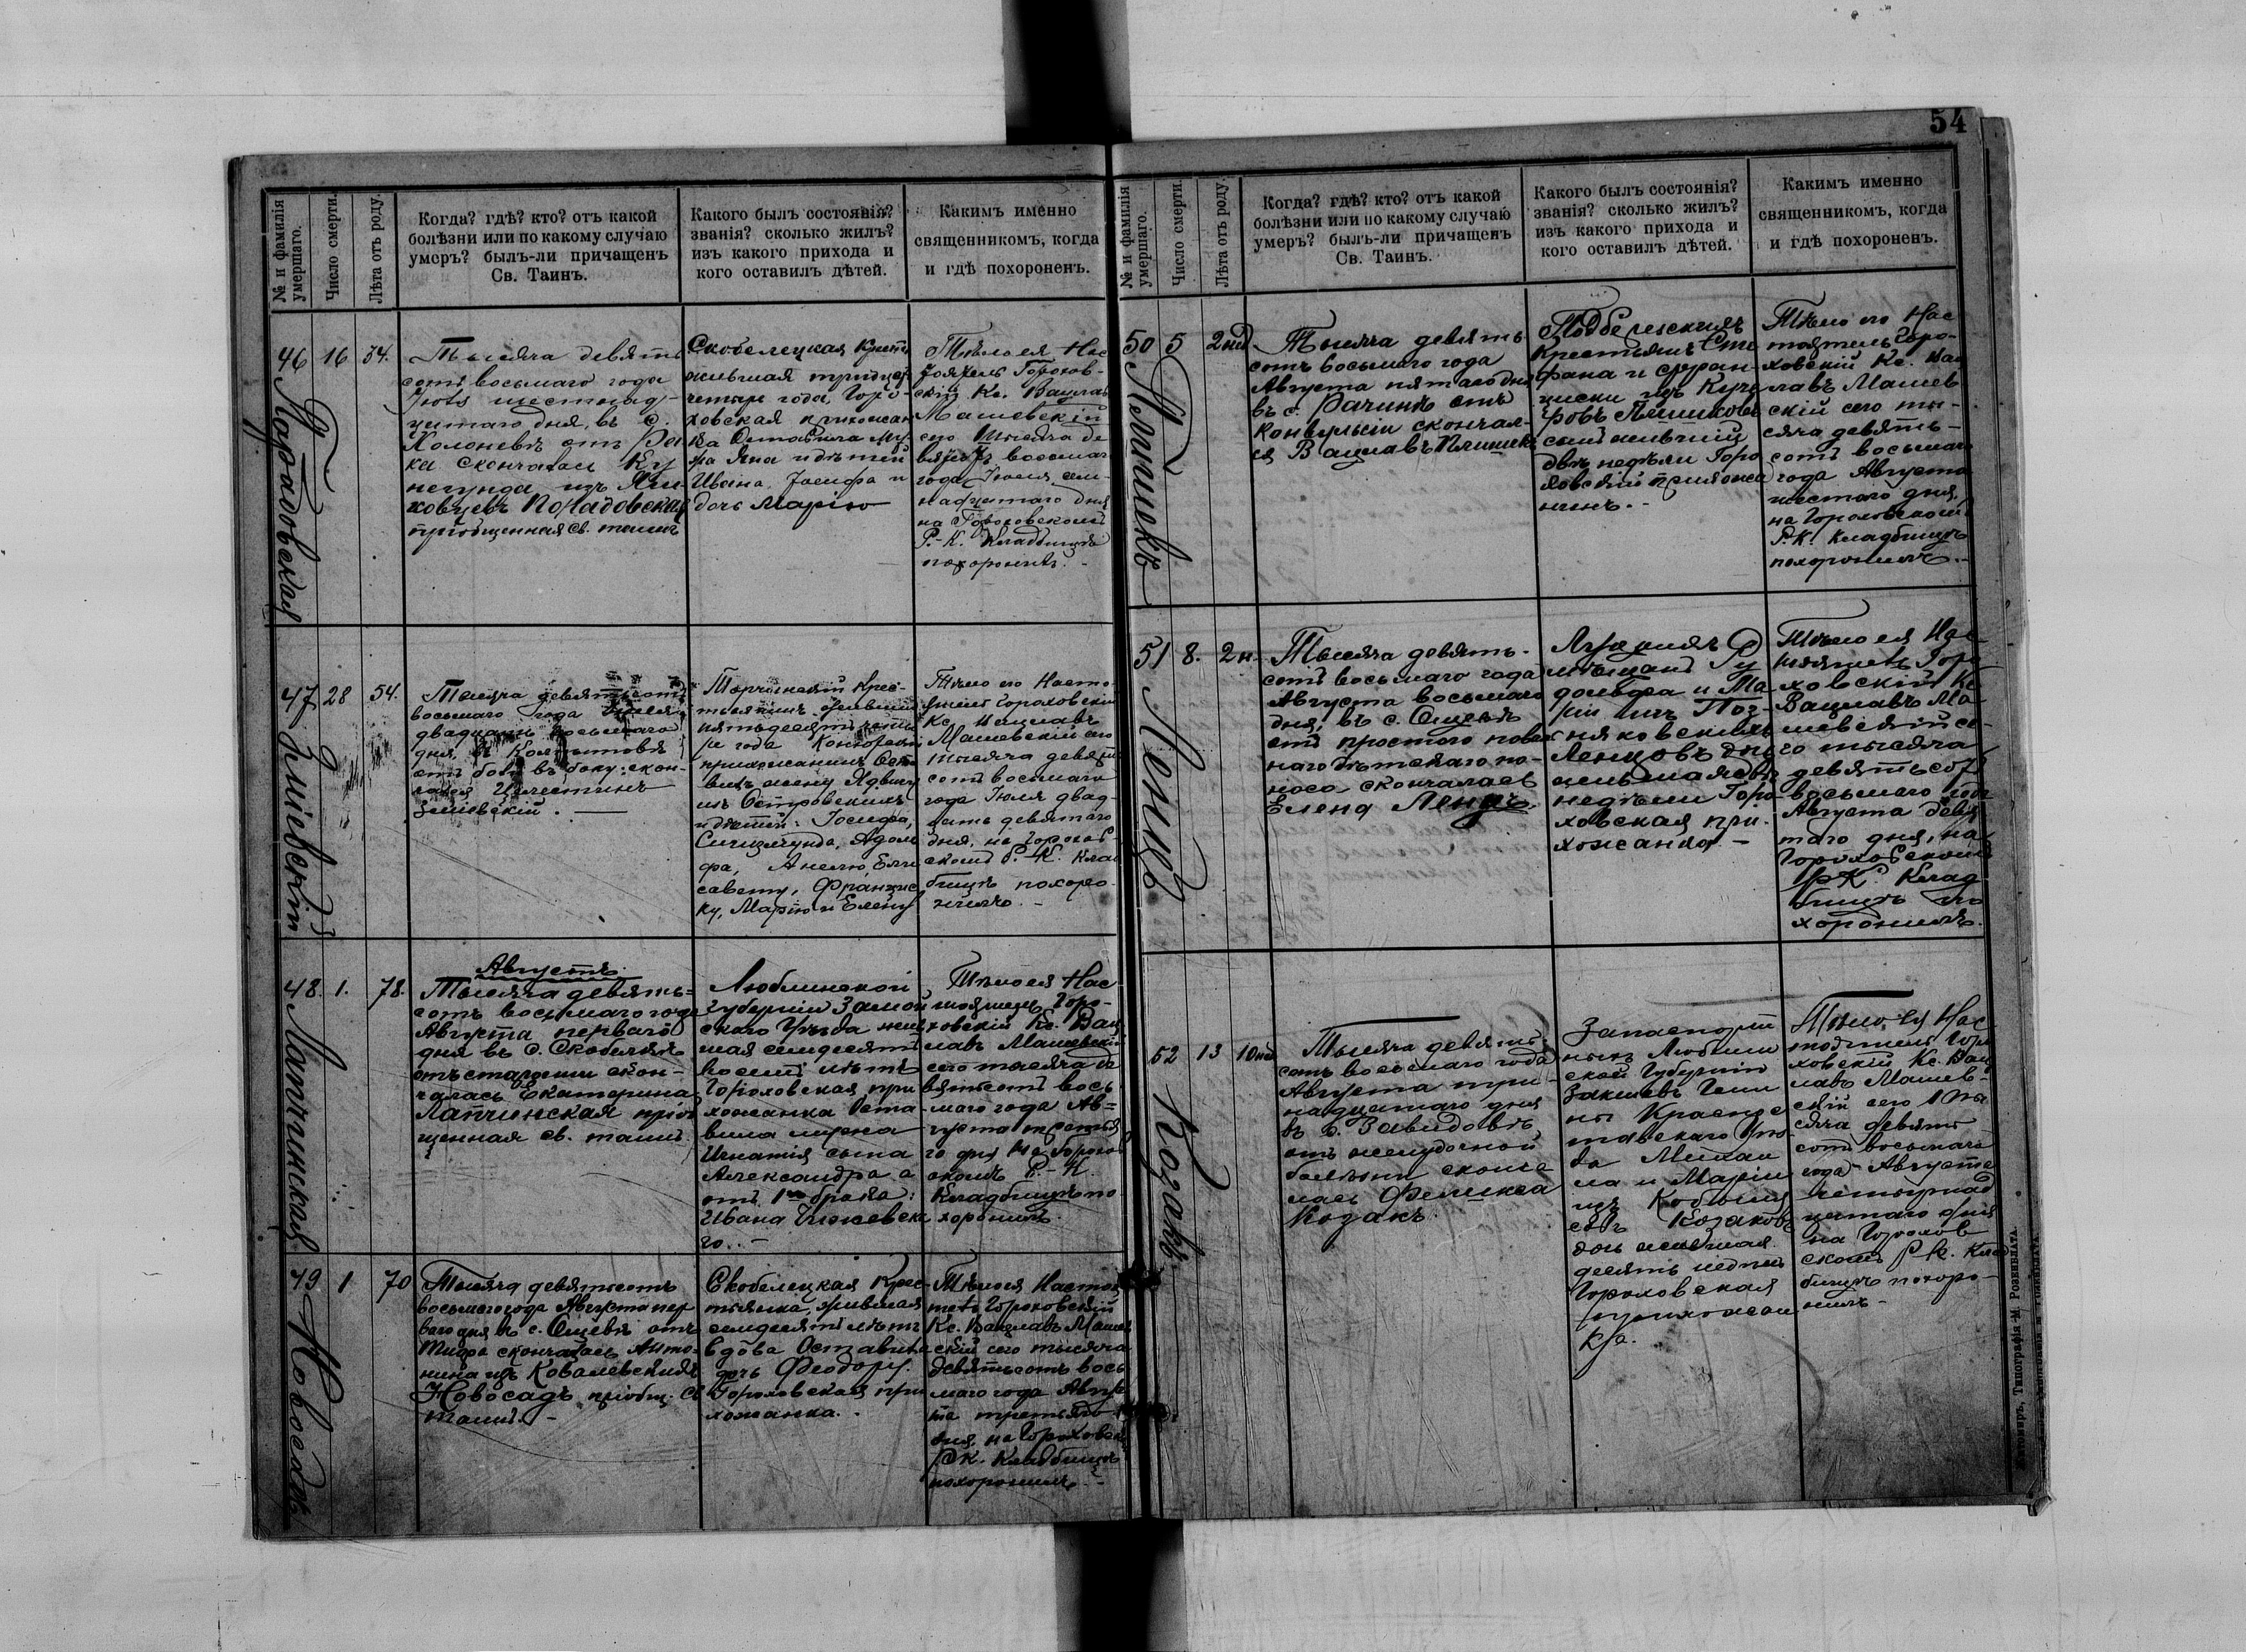 54
№ и фамилія
умершаго.
Число смерти.
Лѣта отъ роду.
Когда? гдѣ? кто? отъ какой
болѣзни или по какому случаю
умеръ? былъ-ли причащенъ
Св. Таинъ.
Какого былъ состоянія?
званія? сколько жилъ?
изъ какого прихода и
кого оставилъ дѣтей.
Каким именно
священникомъ, когда
и гдѣ похороненъ.
46
16
34.
Тысяча девять
сотъ восьмаго года
шестнад-
цатаго дня, въ с.
Холоневѣ отъ Ра
ка скончалась Ку
негунда изъ
пріобщенная св. таинъ
Скобелецкая Крест
жившая тридцать
четыре года, Горо-
ховская прихожан
ка Оставила му
жа Яна и дѣтей
Ивана, Іосифа и
дочь Марію
Тѣло ея Нас
тоятель Горохов-
скій Кс. Вацлавъ
Машевскій
сего тысяча де
вятьсотъ восьмаго
года Іюля сем-
надцатаго дня
на Гороховскомъ
Р.-К. Кладбищѣ
похоронилъ. -
47
Зміевскій
28
54.
Тысяча девятьсотъ
восьмаго года Іюля
двадцать восьмаго
дня, въ
отъ боли въ боку скон-
чался Целестинъ
Зміевскій. —
Торчинскій Крес-
тьянинъ жившій
пятьдесятъ четы
ре года
прихожанинъ Оста
вилъ жену Ядвигу
изъ Островскихъ
и дѣтей: Іосифа,
Сигизмунда, Адоль
фа, Анелю, Ели
савету, Францис
ку, Марію и Елену
Тѣло его Насто-
ятель Гороховскій
Кс. Вацлавъ
Машевскій сего
тысяча девять
сотъ восьмаго
года Іюля двад-
цать девятаго
дня, на Горохов
скомъ Р.-К. Клад
бищѣ похоро-
нилъ. -
48.
Лапчинская
1.
78.
Августъ.
Тысяча девять=
сотъ восьмаго года
Августа перваго
дня въ с. Скобелкѣ
отъ старости скон-
чалась Екатерина
Лапчинская пріоб
щенная св. таинъ.
Люблинской
Губерніи Замой
скаго Уѣзда жив
шая семдесятъ
восемь лѣтъ
Гороховская при
хожанка Оста
вила мужа
Игнатія сына
Александра а
отъ 1го брака:
Ивана
го. . -
Тѣло ея Нас
тоятель Горо-
ховскій Кс. Вац
лавъ Машевскій
сего тысяча де
вятьсотъ вось
маго года Ав=
густа третья
го дня на Горохов
скомъ Р.-К.
Кладбищѣ по-
хоронилъ.
49
Новосадъ
1
70
Тысяча девятьсотъ
восьмаго года Августа пер
ваго дня въ с. Ощевѣ отъ
Тифа скончалась Анто-
нина изъ Ковалевскихъ
Новосадъ пріобщ. св
таинъ. -
Скобелецкая Крес-
тьянка, жившая
семдесятъ лѣтъ
Вдова Оставила
дочь Феодору.
Гороховская при
хожанка. -
Тѣло ея Настоя
тель Гороховскій
Кс. Вацлавъ Машев
скій сего тысяча
девятьсотъ вось
маго года Авгус
та третьяго
дня, на Гороховск
Р.К. Кладбищѣ
похоронилъ. -
№ и фамилія
умершаго.
Число смерти.
Лѣта отъ роду.
Когда? гдѣ? кто? отъ какой
болѣзни или по какому случаю
умеръ? былъ-ли причащенъ
Св. Таинъ.
Какого былъ состоянія?
званія? сколько жилъ?
изъ какого прихода и
кого оставилъ дѣтей.
Каким именно
священникомъ, когда
и гдѣ похороненъ.
50
5
2нд
Тысяча девять-
сотъ восьмаго года
Августа пятаго дня
въ с. Рачинѣ отъ
Конвульсіи скончал-
ся Вацлавъ
Крестьянъ Сте
фана и Фран-
циски изъ
сынъ жившій
двѣ недѣли Горо
ховскій прихожа
нинъ. -
Тѣло его Нас
тоятель Горо-
ховскій Кс. Вац
лавъ Машев
скій сего ты-
сяча девять-
сотъ восьмаго
года Августа
шестого дня,
на Гороховскомъ
Р.К. Кладбищѣ
похоронилъ. -
51
Ленцъ
8.
2н.
Тысяча девять-
сотъ восьмаго года
Августа восьмаго
дня, въ с. Ощевѣ
отъ простого
наго дѣтскаго по-
носа скончалась
Елена Ленцъ.
мѣщанъ Ру
дольфа и Ма
ріи изъ Поз-
няковскихъ
Ленцовъ дочь
жившая двѣ
недѣли Горо-
ховская при-
хожанка. -
Тѣло ея Нас-
тоятель Горо
ховскій Кс.
Вацлавъ Ма-
шевскій се-
го тысяча
девятьсотъ
восьмаго года
Августа девя
таго дня, на
Гороховскомъ
Р.К. Клад
бищѣ по
хоронилъ.
52
Козакъ
13
10нд
Тысяча девять-
сотъ восьмаго года
Августа три-
надцатаго дня
въ с. Завидовѣ
отъ желудочной
болѣзни сконча
лась Феликса
Козакъ.
Запаспорт
ныхъ Люблин
ской Губерніи
Гми
ны Краснос
тавскаго Уѣз
да Михаи
ла и Маріи
изъ
Козаковъ
дочь жившая
десять недѣль
Гороховская
прихожан
ка.
Тѣло, ея Нас
тоятель Горо
ховскій Кс. Вац
лавъ Машев-
скій сего ты
сяча девять
сотъ восьмаго
года Августа
четырнад
цатаго дня
на Горохов
скомъ Р-К. Клад
бищѣ похоро-
нилъ-
Житомиръ, Типографія М. Розенблата.